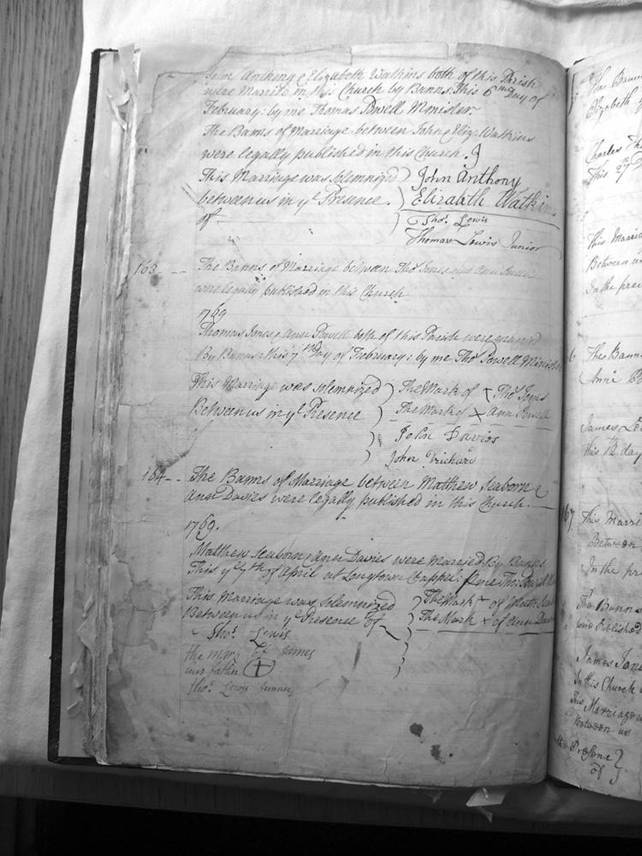 John Anthony & Elizabeth Watkins both of this Parish
were Married in this Church by Banns this 6th Day of
February: by me Thomas Powell Minister
The Banns of Marriage between John & Eliz: Watkins
were legally published in this Church.
This Marriage was solemnized
between us in ye. Presence
of
John Anthony
Elizabeth Watkin
Tho.s Lewis
Thomas Lewis Junior
163 - - The Banns of Marriage between Tho.s Jones and Ann
were legally published in this Church
1769
Thomas Jones & Ann Powell both of this Parish were married
by Banns this 7th Day of February: by me Tho.s Powell Minister
This Marriage was solemnized
Between us in ye. Presence
The Mark of x Tho.s Jones
The Mark of x Ann Powell
John Davies
John
164 - - The Banns of Marriage between Matthew Seaborn &
Ann Davies were legally published in this Church.
1769.
Matthew Seaborn & Ann Davies were Married by Banns
This ye. 7th of April at Longtown Chappel:
This Marriage was Solemnized
Between us in ye. Presence of
The Mark + of
The Mark x of Ann Davies
Tho.s Lewis
the mark James
Tho.s Lewis Junior
The Bann
Elizabeth
Charles
This 27
This Marria
Between u
In the pre
The Bann
Ann
James
this 12 day
167 This Marri
Between
In the pr
The Banns
were Published
James Jon
In this Church
This Marriage
Between us
Presence
of